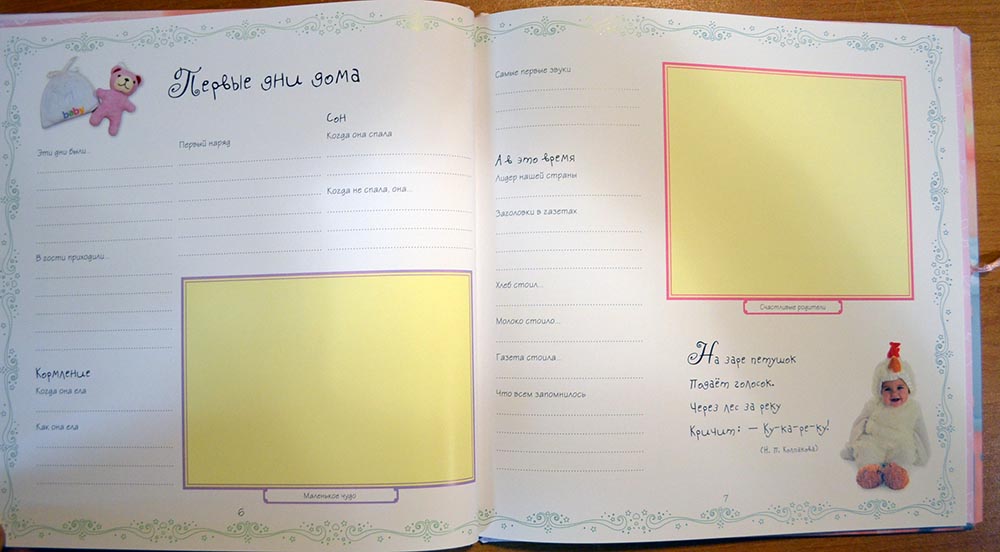 baby
Первые дни дома
Эти дни были...
В гости приходили...
Кормление
Когда она ела
Как она ела
Первый наряд
Сон
Когда она спала
Когда не спала, она...
Маленькое чудо
6
Самые первые звуки
А в это время
Лидер нашей страны
Заголовки в газетах
Хлеб стоил...
Молоко стоило...
Газета стоила...
Что всем запомнилось
Счастливые родители
На заре петушок
Подаёт голосок.
Через лес за реку
Кричит: — Ку-ка-ре-ку!
(Н. П. Колпакова)
7